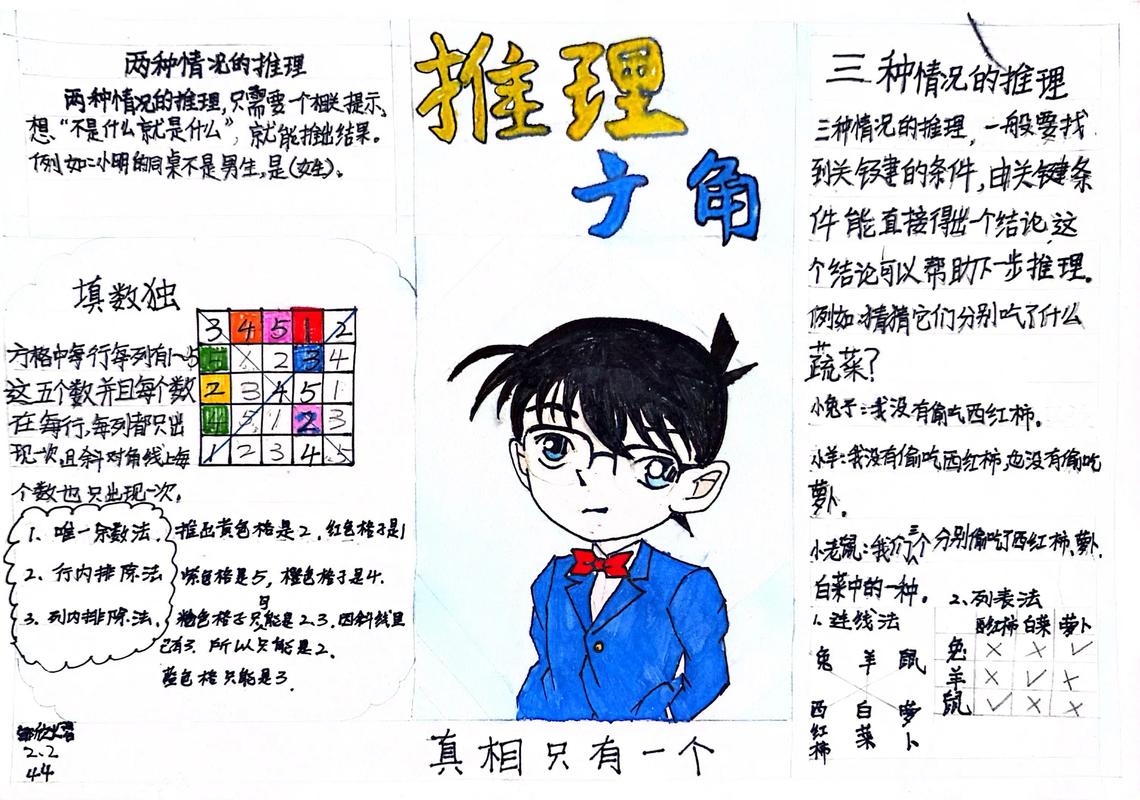 两种情况的推理
两种情况的推理,只需要一个相关提示,
想“不是什么就是什么”,就能推出结果。
例如:小明的同桌不是男生,是(女生)。
推理
广角
填数独
方格中每行每列有1~5
这五个数并且每个数
在每行,每列都只出
现一次且斜对角线上每
个数也只出现一次。
3 4 5 1 2
5 X 2 3 4
2 3 4 5 1
4 5 1 2 3
1 2 3 4 5
1、唯一余数法,推出黄色格是2,红色格子是1
2、行内排除法 紫色格是5,橙色格子是4.
3、列内排除法, 粉色格子只能是2、3,因斜线里
已有3,所以只能是2.
蓝色格只能是3.
2.2
44
真相只有一个
三种情况的推理
三种情况的推理,一般要找
到关键的条件,由关键条
件能直接得出一个结论,这
个结论可以帮助下一步推理。
例如:猜猜它们分别吃了什么
蔬菜?
小兔子:我没有偷吃西红柿。
小羊:我没有偷吃西红柿,也没有偷吃
萝卜。
小老鼠:我们三个分别偷吃了西红柿、萝卜、
白菜中的一种。
1、连线法
兔 羊 鼠
西红柿 白菜 萝卜
2、列表法
西红柿 白菜 萝卜
兔 × × ✓
羊 × ✓ ×
鼠 ✓ × ×